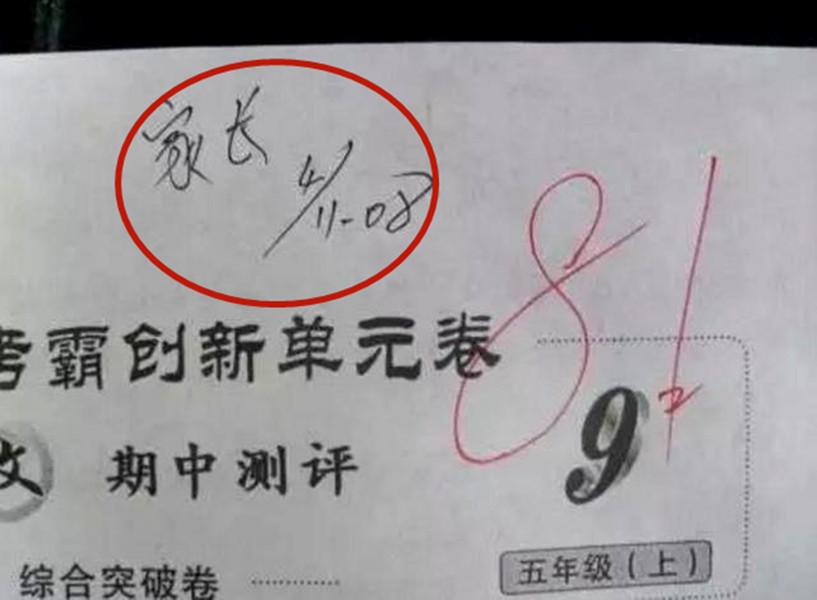 家长
4/11-08
81
考霸创新单元卷
9
文 期中测评
五年级(上)
综合突破卷